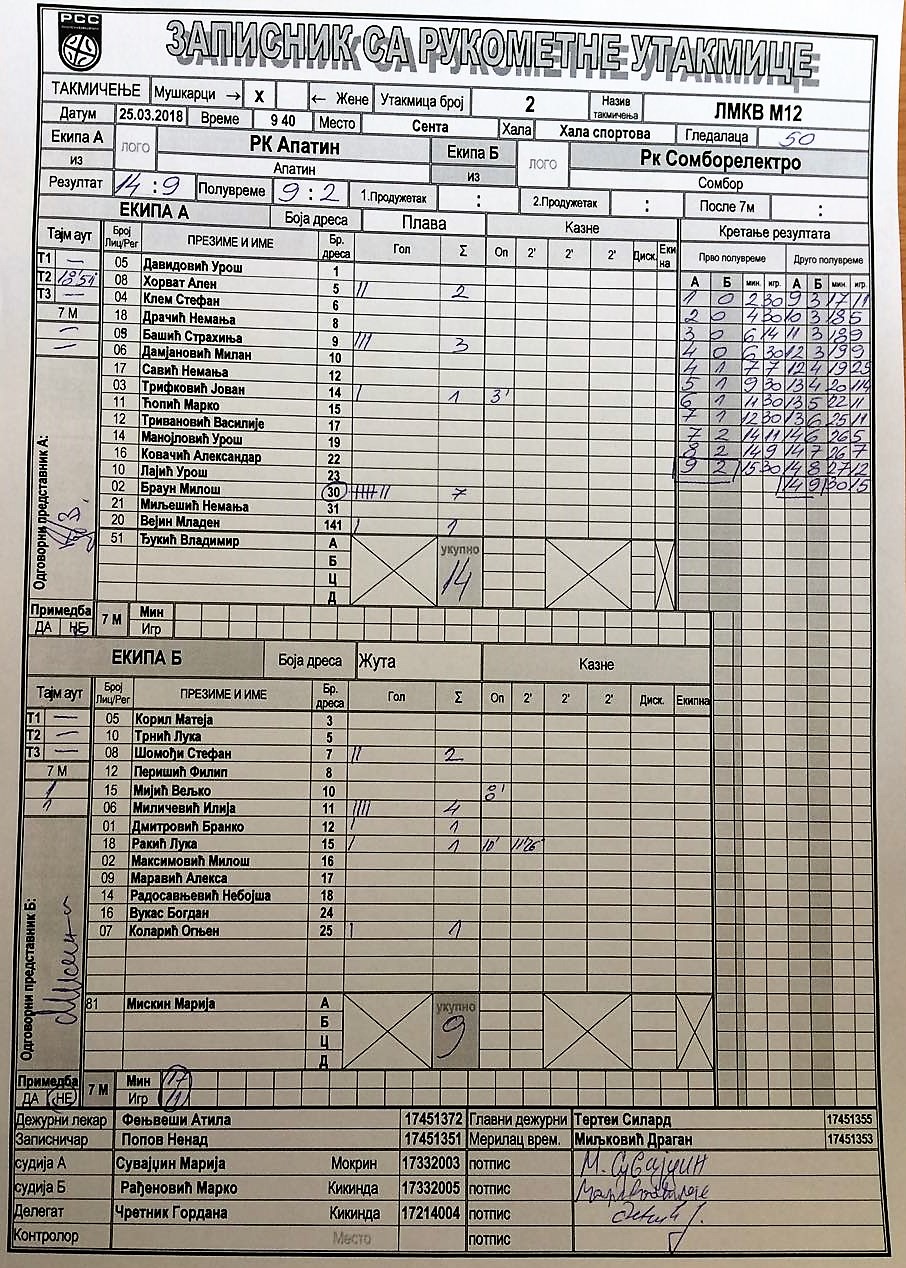 РСС
ЗАПИСНИК СА РУКОМЕТНЕ УТАКМИЦЕ
ТАКМИЧЕЊЕ Мушкарци → X ← Жене Утакмица број 2 Назив такмичења ЛМКВ М12
Датум 25.03.2018 Време 9 40 Место Сента Хала Хала спортова Гледалаца 50
Екипа А из ЛОГО РК Апатин Апатин Екипа Б из ЛОГО Рк Сомборелектро Сомбор
Резултат 14 : 9 Полувреме 9 : 2 1.Продужетак : 2.Продужетак : После 7м :
ЕКИПА А Боја дреса Плава Казне Кретање резултата
Тајм аут Број Лиц/Рег ПРЕЗИМЕ И ИМЕ Бр. дреса Гол Σ Оп 2' 2' 2' Диск. Еки на Прво полувреме Друго полувреме
А Б мин. игр. А Б мин. игр.
Т1 — 05 Давидовић Урош 1
Т2 08 Хорват Ален 5 || 2
Т3 — 04 Клем Стефан 6
7 М 18 Драчић Немања 8
— 09 Башић Страхиња 9 ||| 3
— 06 Дамјановић Милан 10
17 Савић Немања 12
03 Трифковић Јован 14 | 1 3'
11 Ћопић Марко 15
12 Тривановић Василије 17
14 Манојловић Урош 19
16 Ковачић Александар 22
10 Лајић Урош 23
02 Браун Милош 30 7
21 Миљешић Немања 31
20 Вејин Младен 141 | 1
51 Ђукић Владимир А укупно 14
Б
Ц
Д
1 0 2 30 9 3 17 11
2 0 4 30 10 3 18 5
3 0 6 14 11 3 18 9
4 0 6 30 12 3 19 9
4 1 7 7 12 4 19 25
5 1 9 30 13 4 20 14
6 1 11 30 13 5 22 11
7 1 12 30 13 6 25 11
7 2 14 11 14 6 26 5
8 2 14 9 14 7 26 7
9 2 15 30 14 8 27 12
14 9 30 15
Одговорни представник А:
Примедба ДА НЕ 7 М Мин
Игр
ЕКИПА Б Боја дреса Жута Казне
Тајм аут Број Лиц/Рег ПРЕЗИМЕ И ИМЕ Бр. дреса Гол Σ Оп 2' 2' 2' Диск. Екипна
Т1 — 05 Корил Матеја 3
Т2 — 10 Трнић Лука 5
Т3 — 08 Шомођи Стефан 7 || 2
7 М 12 Перишић Филип 8
1 15 Мијић Вељко 10 8'
1 06 Миличевић Илија 11 |||| 4
01 Дмитровић Бранко 12 | 1
18 Ракић Лука 15 | 1 10' 11'26
02 Максимовић Милош 16
09 Маравић Алекса 17
14 Радосављевић Небојша 18
16 Вукас Богдан 24
07 Коларић Огњен 25 | 1
81 Мискин Марија А укупно 9
Б
Ц
Д
Одговорни представник Б:
Примедба ДА НЕ 7 М Мин 17
Игр 11
Дежурни лекар Фењвеши Атила 17451372 Главни дежурни Тертеи Силард 17451355
Записничар Попов Ненад 17451351 Мерилац врем. Миљковић Драган 17451353
судија А Сувајџин Марија Мокрин 17332003 потпис М. Сувајџин
судија Б Рађеновић Марко Кикинда 17332005 потпис
Делегат Чретник Гордана Кикинда 17214004 потпис
Контролор Место потпис